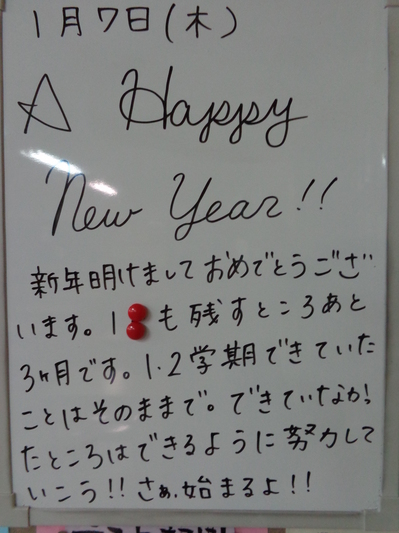 1月7日(木)
A Happy
New Year!!
新年明けましておめでとうござ
います。1 も残すところあと
3ヶ月です。1・2学期できていた
ことはそのままで。できていなかっ
たところはできるように努力して
いこう!!さぁ、始まるよ!!